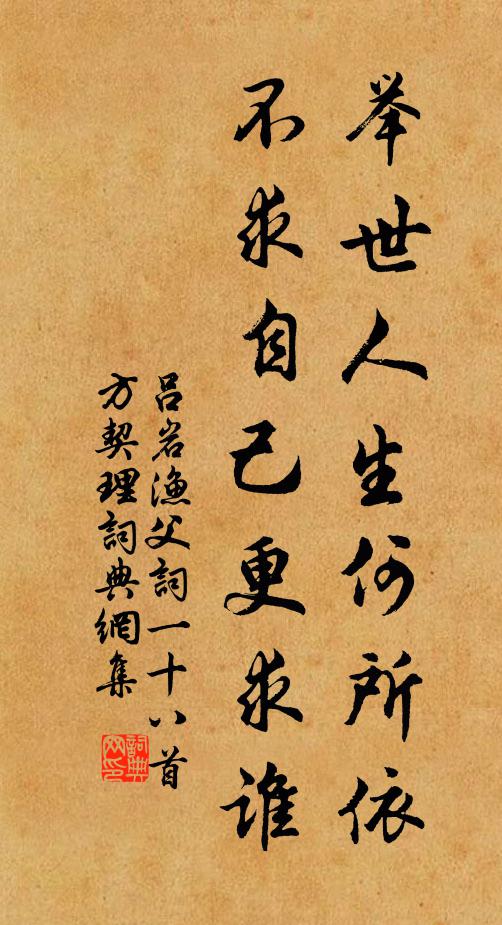 举世人生何所依
不求自己更求谁
吕岩渔父詞一十八首
方契理詞典網集
詞典网印